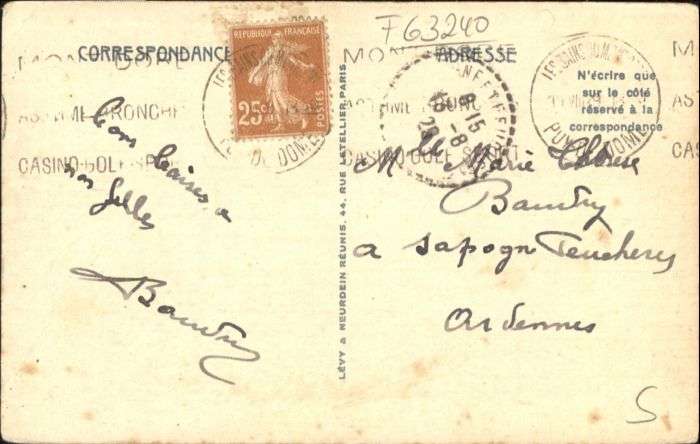 F63240
CORRESPONDANCE
ADRESSE
REPUBLIQUE FRANÇAISE
25c
POSTES
MONT-DORE
ASTHME BRONCHES
CASINO-GOLF-SPORT
PUY DE DOME
8-15
N'écrire que
sur le côté
réservé à la
correspondance
Bons baisers a
nos filles
Baudry
LÉVY & NEURDEIN RÉUNIS, 44, RUE LETELLIER, PARIS
Mlle Marie Thérèse
Baudry
a Sapogne Feucheres
Ardennes
S